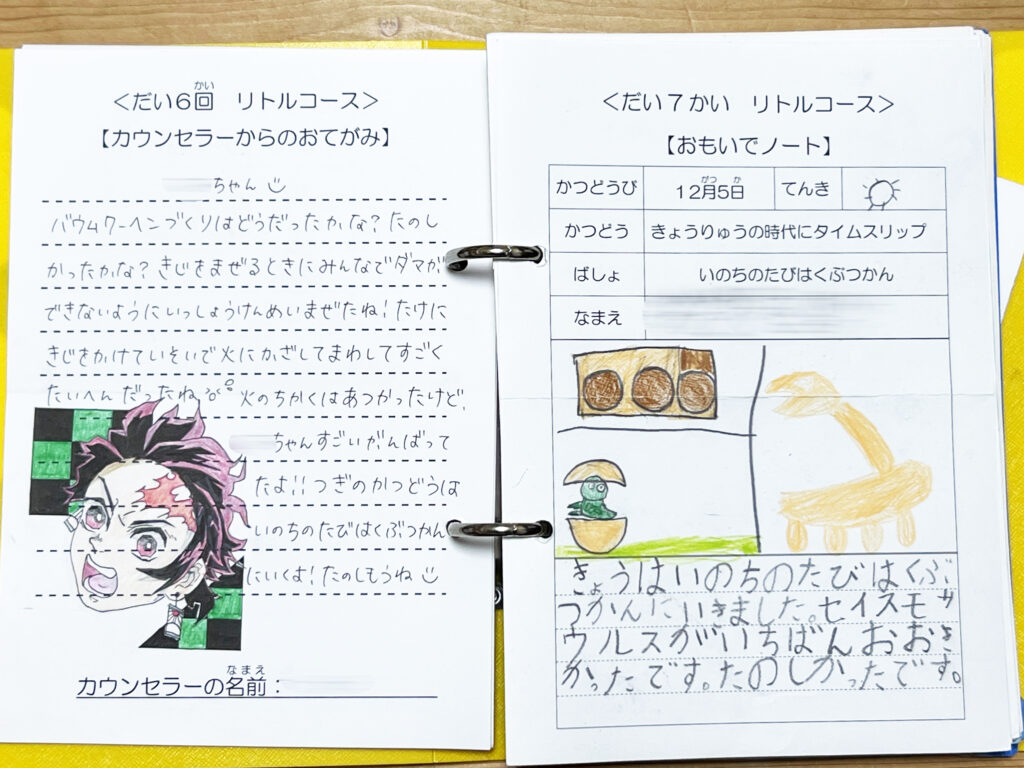 <だい6回 リトルコース>
かい
【カウンセラーからのおてがみ】
ちゃん
バウムクーヘンづくりはどうだったかな？たのし
かったかな？きじをまぜるときにみんなでダマが
できないようにいっしょうけんめいまぜたね！たけに
きじをかけていそいで火にかざしてまわしてすごく
たいへんだったね 火のちかくはあつかったけど、
ちゃんすごいがんばって
たよ!!つぎのかつどうは
いのちのたびはくぶつかん
にいくよ！たのしもうね
なまえ
カウンセラーの名前：
<だい7かい リトルコース>
【おもいでノート】
かつどうび 12月5日 てんき
がつ か
かつどう きょうりゅうの時代にタイムスリップ
ばしょ いのちのたびはくぶつかん
なまえ
きょうはいのちのたびはくぶ
つかんにいきました。セイスモサ
ウルスがいちばんおおき
かったです。たのしかったです。